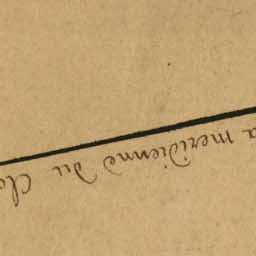 a meridienne du Clo